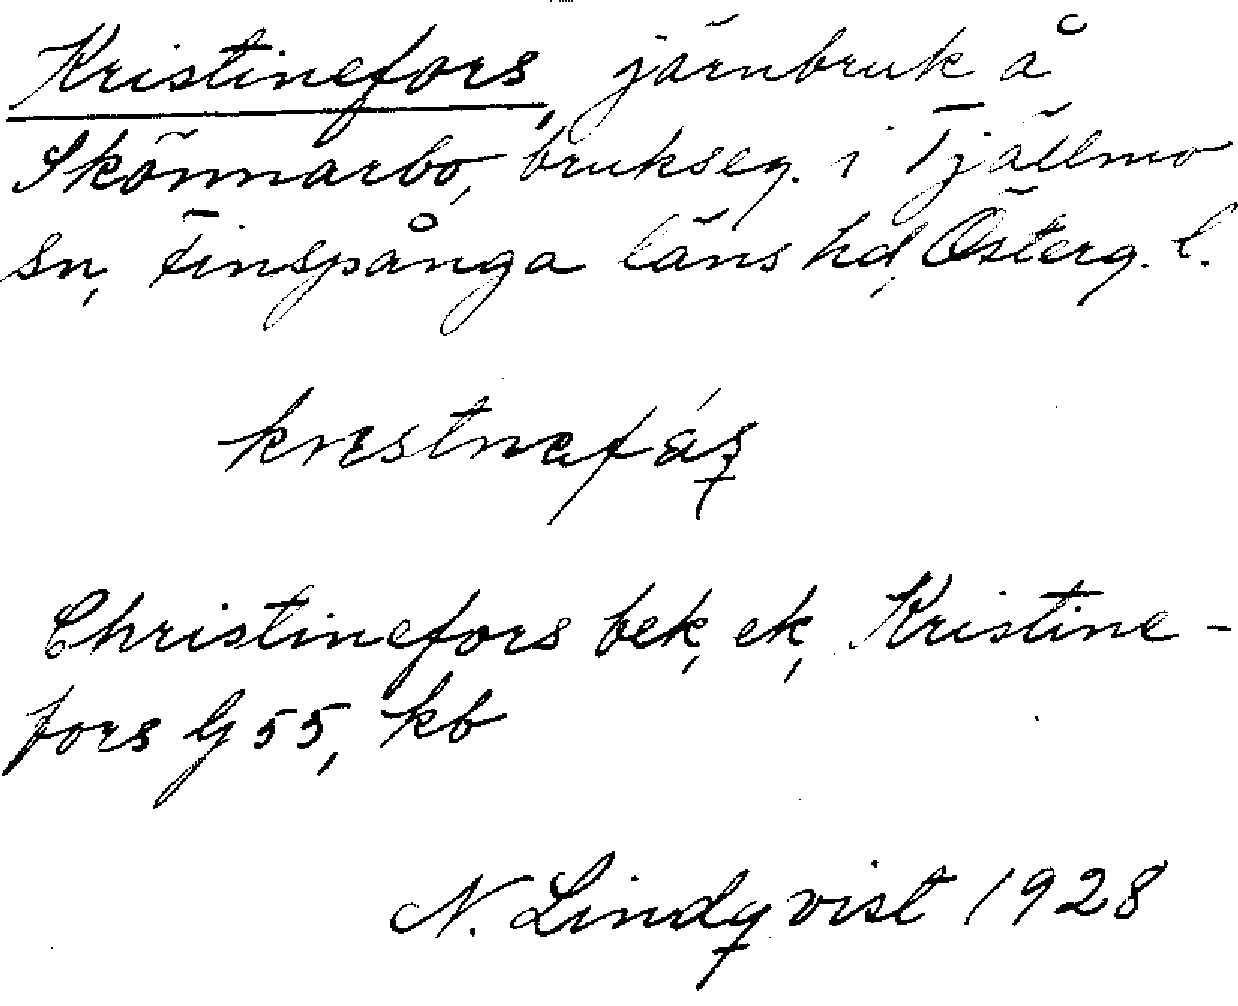 Kristinefors, järnbruk å
Skönnarbo, brukseg. i Tjällmo
sn, Finspånga läns hd, Österg. l.
Christinefors bek, ek, Kristine-
fors G 55, kb
N. Lindqvist 1928